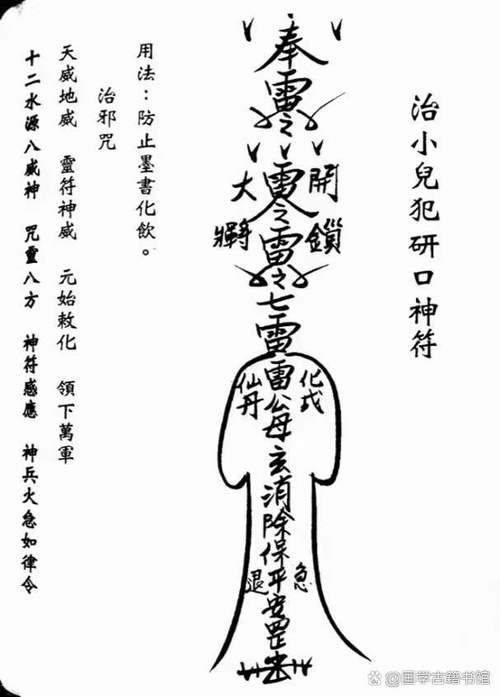 治小兒犯研口神符
奉
雷
令
雷
大將
開鎖
之
雷
之
七
雷
雷
仙丹
化戌
公母
玄消除保平安罡
退
急
用法：防止墨書化飲。
治邪咒
天威地威 靈符神威 元始敕化 領下萬軍
十二水源八威神 咒靈八方 神符感應 神兵火急如律令
国学古籍书馆